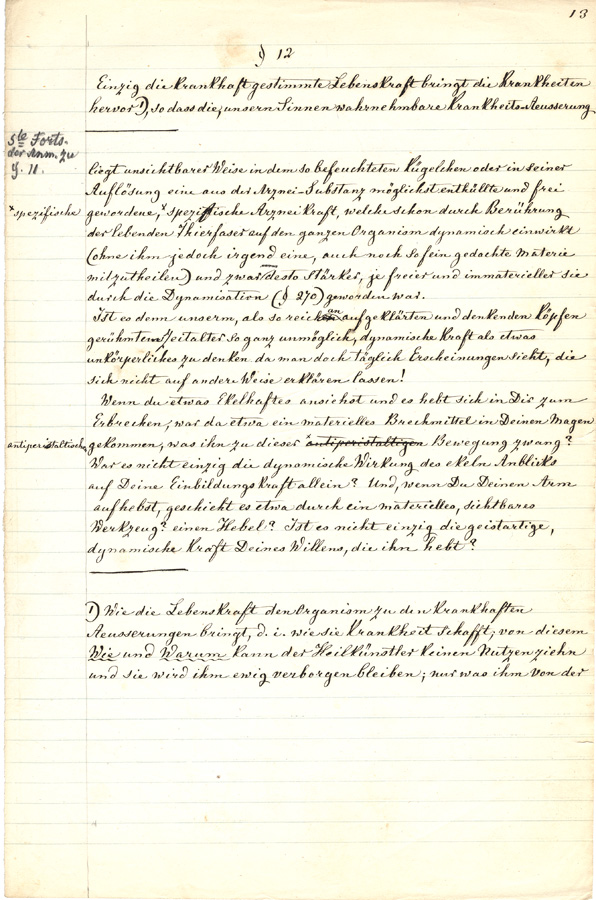 13
§ 12
Einzig die krankhaft gestimmte Lebenskraft bringt die Krankheiten
hervor 1), so dass die, unsern Sinnen wahrnehmbare Krankheits-Aeusserung
5te Forts.
der Anm. zu
§. 11.
liegt unsichtbarer Weise in dem so befeuchteten Kügelchen oder in seiner
Auflösung eine aus der Arznei-Substanz möglichst enthüllte und frei
x spezifische
gewordene, x spezifische Arzneikraft, welche schon durch Berührung
der lebenden Thierfaser auf den ganzen Organism dynamisch einwirkt
(ohne ihm jedoch irgend eine, auch noch so fein gedachte Materie
mitzutheilen) und zwar desto stärker, je freier und immaterieller sie
durch die Dynamisation (§ 270) geworden war.
Ist es denn unserm, als so reich an aufgeklärten und denkenden Köpfen
gerühmtem Zeitalter so ganz unmöglich, dynamische Kraft als etwas
unkörperliches zu denken da man doch täglich Erscheinungen sieht, die
sich nicht auf andere Weise erklären lassen!
Wenn du etwas Ekelhaftes ansiehst und es hebt sich in Dir zum
Erbrechen, war da etwa ein materielles Brechmittel in Deinen Magen
antiperistaltischen
gekommen, was ihn zu dieser x antiperistaltigen Bewegung zwang?
War es nicht einzig die dynamische Wirkung des ekeln Anblicks
auf Deine Einbildungskraft allein? Und, wenn Du Deinen Arm
aufhebst, geschieht es etwa durch ein materielles, sichtbares
Werkzeug? einen Hebel? Ist es nicht einzig die geistartige,
dynamische Kraft Deines Willens, die ihn hebt?
1) Wie die Lebenskraft den Organism zu den krankhaften
Aeusserungen bringt, d. i. wie sie Krankheit schafft; von diesem
Wie und Warum kann der Heilkünstler keinen Nutzen ziehn
und sie wird ihm ewig verborgen bleiben; nur was ihm von der